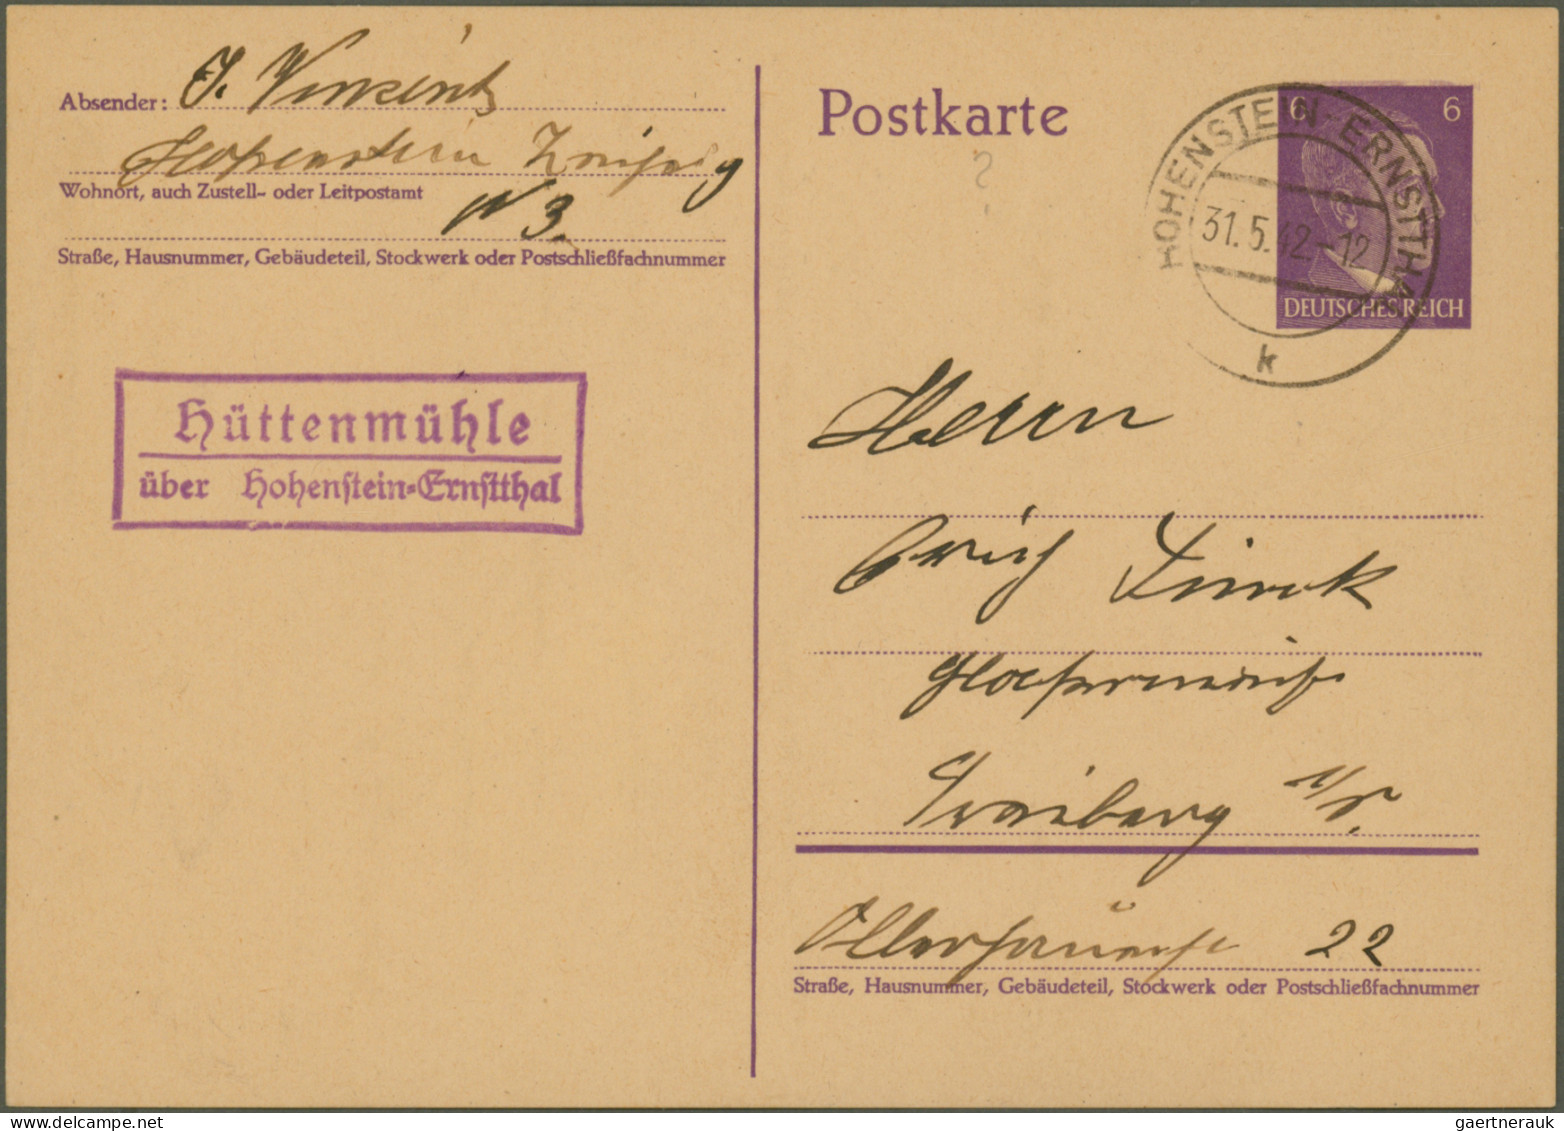 Absender: J.
Wohnort, auch Zustell- oder Leitpostamt
N 3.
Straße, Hausnummer, Gebäudeteil, Stockwerk oder Postschließfachnummer
Hüttenmühle
über Hohenstein-Ernstthal
Postkarte
?
6 6
DEUTSCHES REICH
HOHENSTEIN-ERNSTTHAL
31.5.42.-12
k
Herrn
Erich
Freiberg i/S.
22
Straße, Hausnummer, Gebäudeteil, Stockwerk oder Postschließfachnummer
gaertnerauk